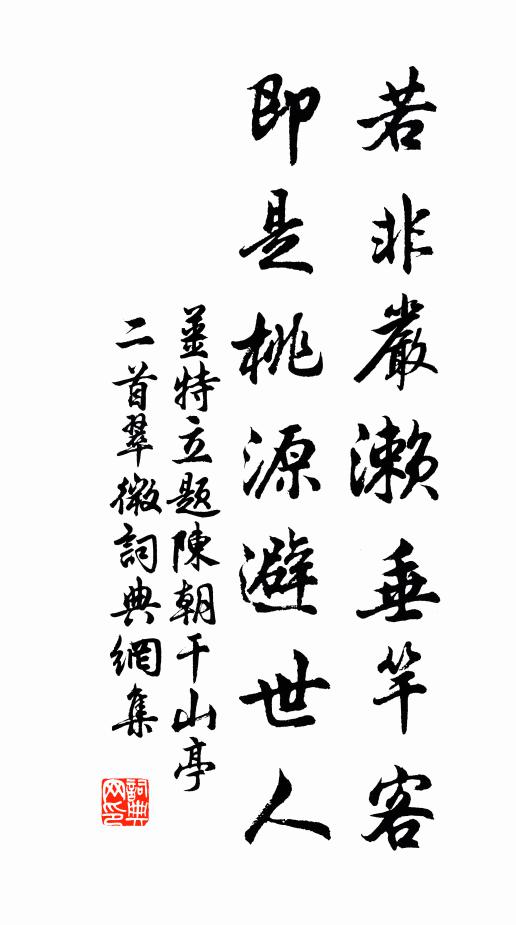 若非嚴瀨垂竿客
即是桃源避世人
姜特立題陳朝干山亭
二首翠微詞典網集
詞典
网印